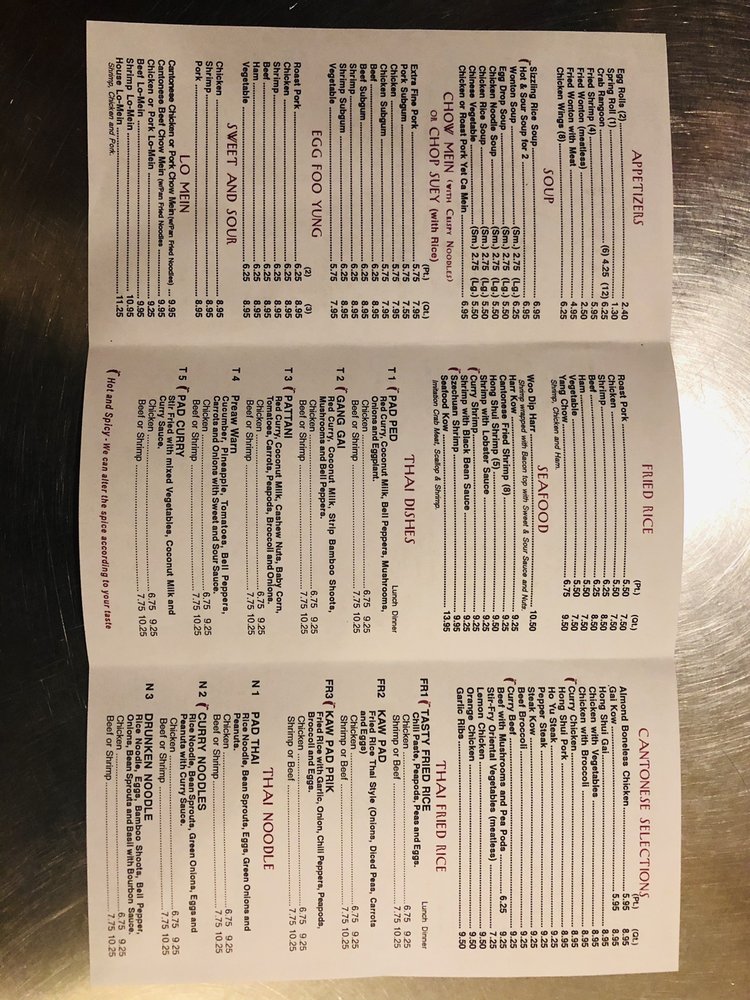 APPETIZERS
Egg Rolls (2) 2.40
Spring Roll (1) 1.30
Crab Rangoon (6) 4.25 (12) 6.25
Fried Shrimp (4) 5.95
Fried Wonton (meatless) 2.50
Fried Wonton with Meat 4.95
Chicken Wings (8) 6.25
SOUP
Sizzling Rice Soup 6.95
Hot & Sour Soup for 2 6.95
Wonton Soup (Sm.) 2.75 (Lg.) 6.25
Egg Drop Soup (Sm.) 2.75 (Lg.) 5.50
Chicken Noodle Soup (Sm.) 2.75 (Lg.) 5.50
Chicken Rice Soup (Sm.) 2.75 (Lg.) 5.50
Chinese Vegetable (Sm.) 2.75 (Lg.) 5.50
Chicken or Roast Pork Yet Ca Mein 6.95
CHOW MEIN (WITH CRISPY NOODLES)
OR CHOP SUEY (with Rice)
(Pt.) (Qt.)
Extra Fine Pork 5.75 7.95
Pork Subgum 5.75 7.55
Chicken 5.75 7.95
Chicken Subgum 5.75 7.95
Beef 6.25 8.95
Beef Subgum 6.25 8.95
Shrimp 6.25 8.95
Shrimp Subgum 6.25 8.95
Vegetable 5.75 7.95
EGG FOO YUNG
(2) (3)
Roast Pork 6.25 8.95
Chicken 6.25 8.95
Shrimp 6.25 8.95
Beef 6.25 8.95
Ham 6.25 8.95
Vegetable 6.25 8.95
SWEET AND SOUR
Chicken 8.95
Shrimp 8.95
Pork 8.95
LO MEIN
Cantonese Chicken or Pork Chow Mein (w/Pan Fried Noodles) 9.95
Cantonese Beef Chow Mein (w/Pan Fried Noodles 9.95
Chicken or Pork Lo-Mein 9.25
Beef Lo-Mein 9.95
Shrimp Lo-Mein 10.95
House Lo-Mein 11.25
Shrimp, Chicken and Pork.
FRIED RICE
(Pt.) (Qt.)
Roast Pork 5.50 7.50
Chicken 5.50 7.50
Shrimp 6.25 8.50
Beef 6.25 8.50
Ham 5.50 7.50
Vegetable 5.50 7.50
Yang Chow 6.75 9.50
Shrimp, Chicken and Ham.
SEAFOOD
Woo Dip Harr 10.50
Shrimp wrapped with Bacon top with Sweet & Sour Sauce and Nuts.
Harr Kow 9.25
Cantonese Fried Shrimp (8) 9.25
Hong Shui Shrimp (5) 9.50
Shrimp with Lobster Sauce 9.25
Curry Shrimp 9.25
Shrimp with Black Bean Sauce 9.25
Szechuan Shrimp 9.95
Seafood Kow 13.95
Imitation Crab Meat, Scallop & Shrimp.
THAI DISHES
Lunch Dinner
T 1 PAD PED
Red Curry, Coconut Milk, Bell Peppers, Mushrooms,
Onions and Eggplant.
Chicken 6.75 9.25
Beef or Shrimp 7.75 10.25
T 2 GANG GAI
Red Curry, Coconut Milk, Strip Bamboo Shoots,
Mushrooms and Bell Peppers.
Chicken 6.75 9.25
Beef or Shrimp 7.75 10.25
T 3 PATTANI
Red Curry, Coconut Milk, Cashew Nuts, Baby Corn,
Tomatoes, Carrots, Peapods, Broccoli and Onions.
Chicken 6.75 9.25
Beef or Shrimp 7.75 10.25
T 4 Preaw Warn
Cucumber, Pineapple, Tomatoes, Bell Peppers,
Carrots and Onions with Sweet and Sour Sauce.
Chicken 6.75 9.25
Beef or Shrimp 7.75 10.25
T 5 PAD CURRY
Stir Fried with mixed Vegetables, Coconut Milk and
Curry Sauce.
Chicken 6.75 9.25
Beef or Shrimp 7.75 10.25
Hot and Spicy - We can alter the spice according to your taste
CANTONESE SELECTIONS
(Pt.) (Qt.)
Almond Boneless Chicken 5.95 8.95
Gai Kow 5.95 8.95
Hong Shui Gai 8.95
Chicken with Vegetables 8.95
Chicken with Broccoli 8.95
Curry Chicken 8.95
Hong Shui Pork 8.95
Ho Yu Steak 9.25
Pepper Steak 9.25
Steak Kow 9.25
Beef Broccoli 9.25
Curry Beef 9.25
Beef with Mushrooms and Pea Pods 6.25 9.25
Stir-Fry Oriental Vegetables (meatless) 7.25
Lemon Chicken 9.50
Orange Chicken 9.50
Garlic Ribs 9.50
THAI FRIED RICE
Lunch Dinner
FR1 TASTY FRIED RICE
Chili Paste, Peapods, Peas and Eggs.
Chicken 6.75 9.25
Shrimp or Beef 7.75 10.25
FR2 KAW PAD
Fried Rice Thai Style (Onions, Diced Peas, Carrots
and Eggs)
Chicken 6.75 9.25
Shrimp or Beef 7.75 10.25
FR3 KAW PAD PRIK
Fried Rice with Garlic, Onion, Chili Peppers, Peapods,
Broccoli and Eggs.
Chicken 6.75 9.25
Shrimp or Beef 7.75 10.25
THAI NOODLE
N 1 PAD THAI
Rice Noodle, Bean Sprouts, Eggs, Green Onions and
Peanuts.
Chicken 6.75 9.25
Beef or Shrimp 7.75 10.25
N 2 CURRY NOODLES
Rice Noodle, Bean Sprouts, Green Onions, Eggs and
Peanuts with Curry Sauce.
Chicken 6.75 9.25
Beef or Shrimp 7.75 10.25
N 3 DRUNKEN NOODLE
Rice Noodle, Eggs, Bamboo Shoots, Bell Pepper,
Onions, Bean Sprouts and Basil with Bourbon Sauce.
Chicken 6.75 9.25
Beef or Shrimp 7.75 10.25